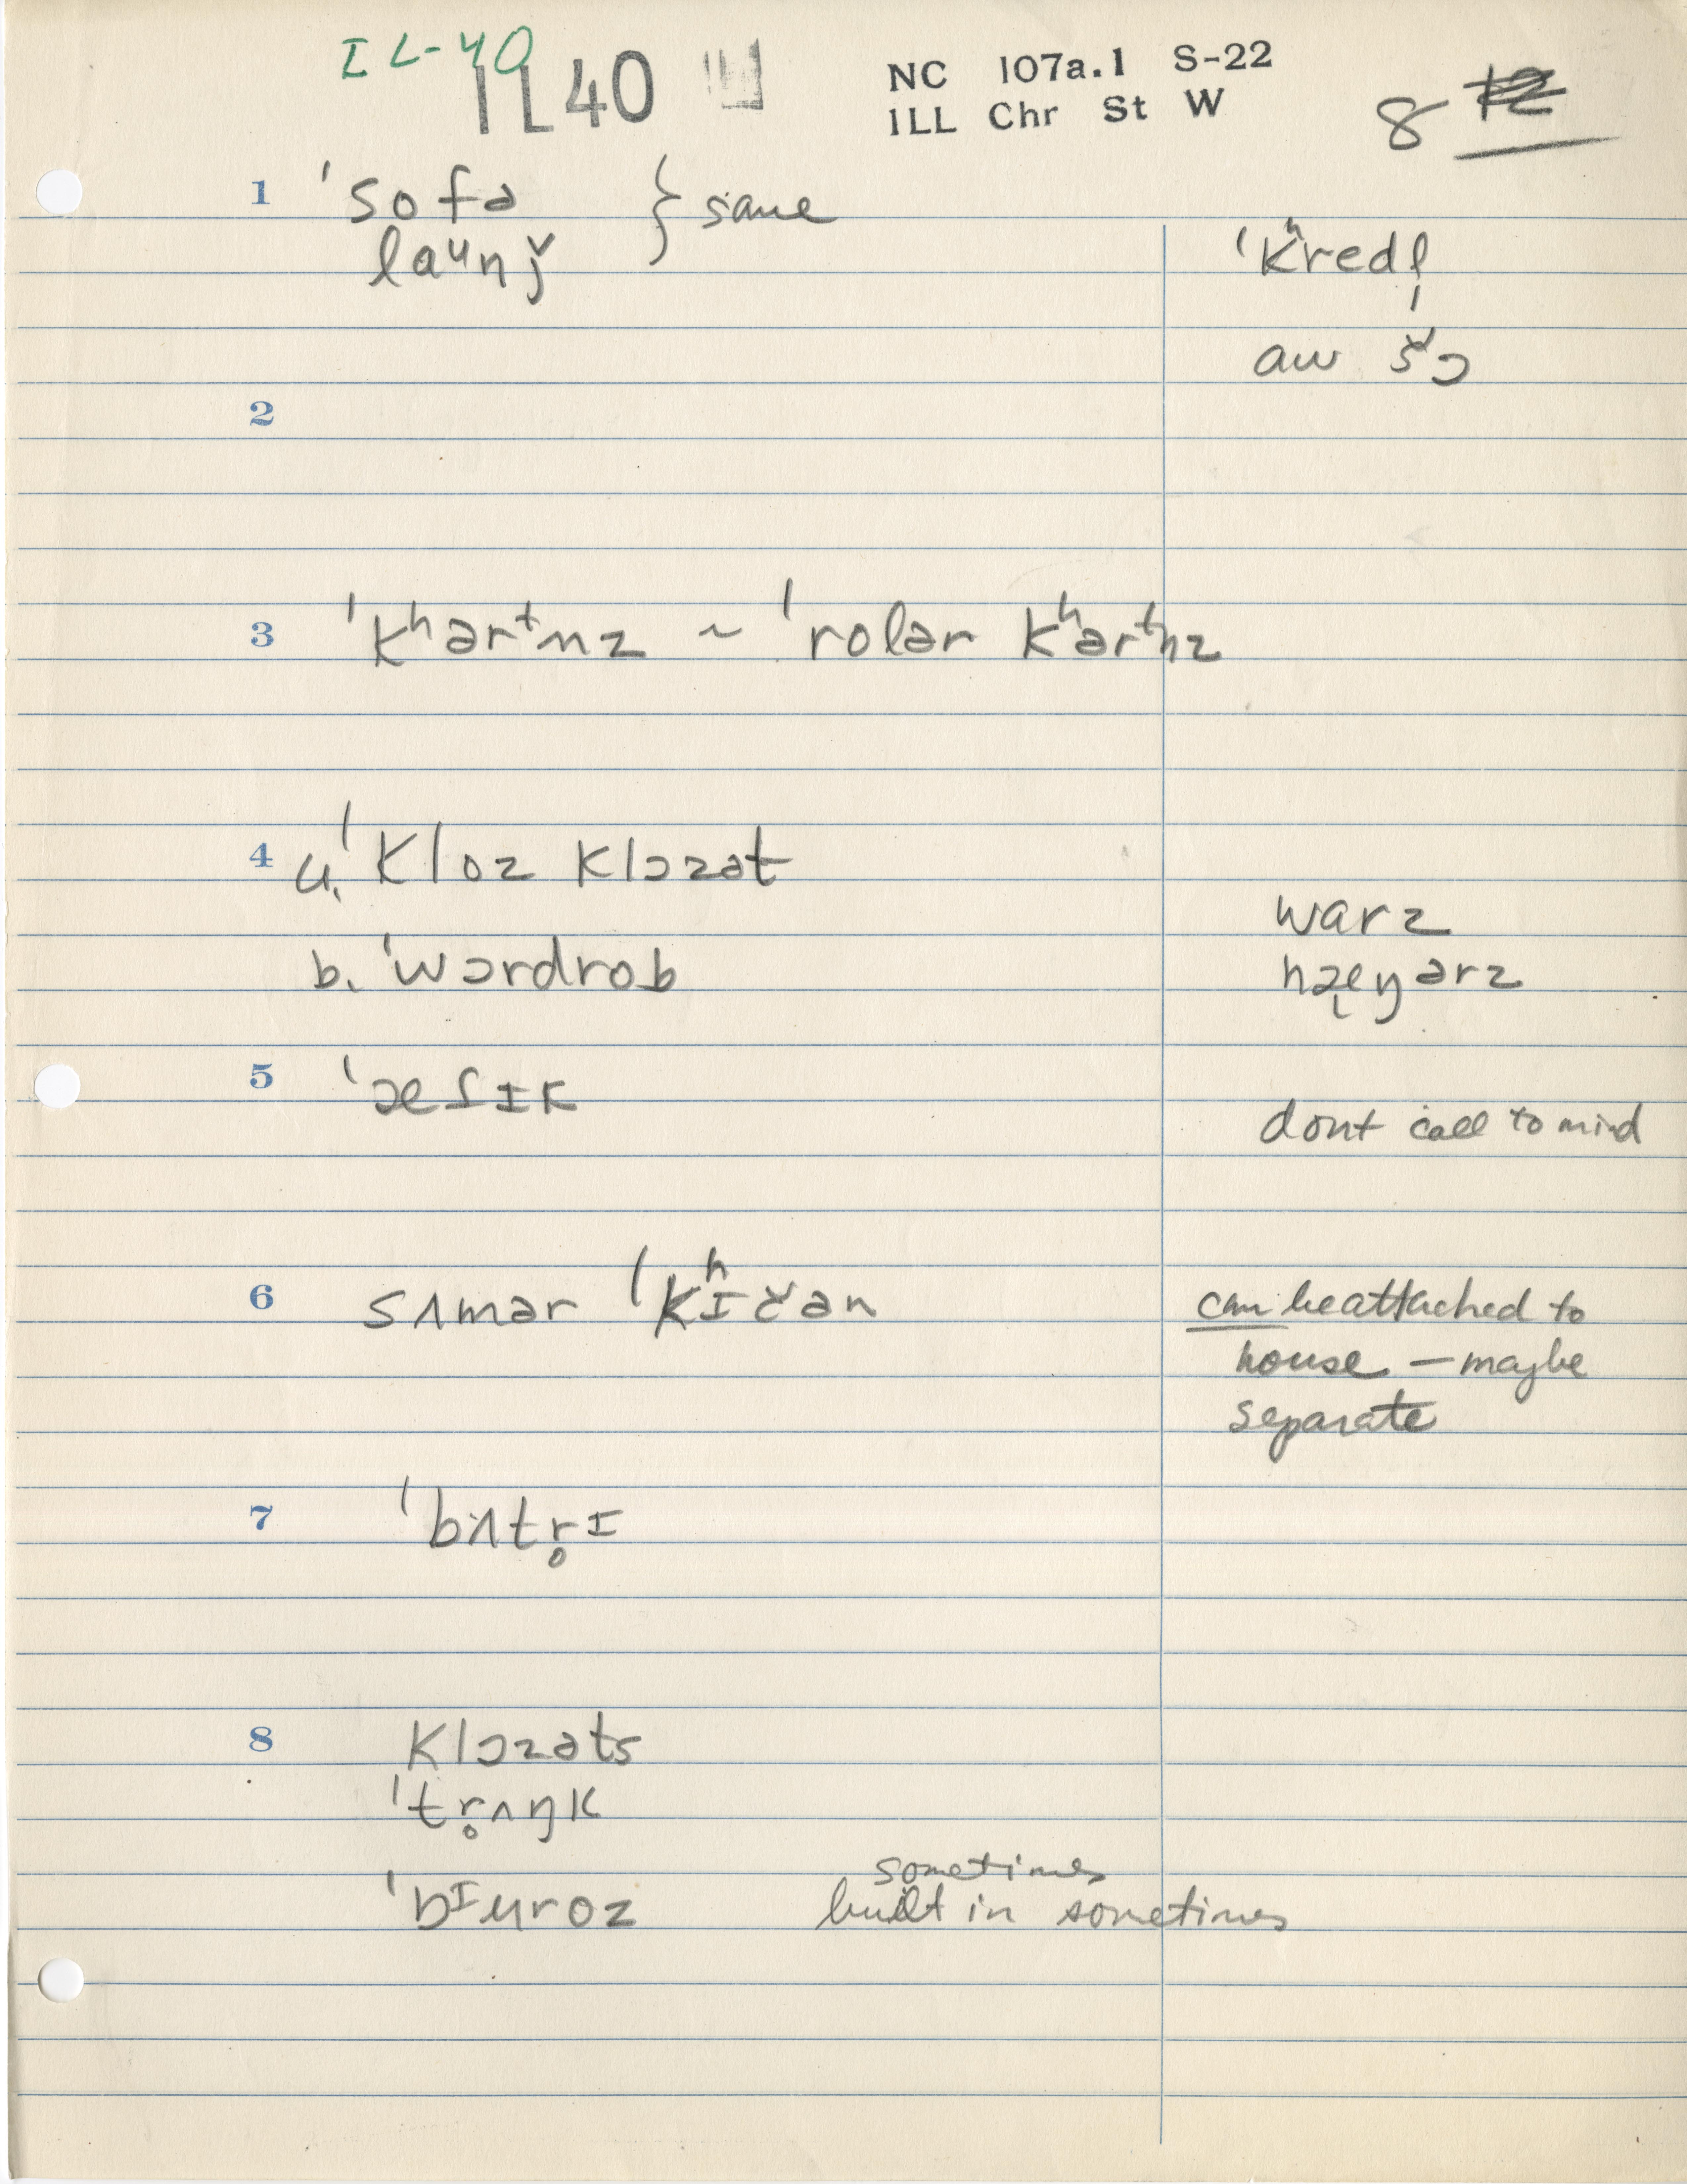 IL-40
IL 40
NC 107a.1 S-22
ILL Chr St W
8
1 ˈsofə } same
laᵘnǰ
ˈkʰredl̩
aw šɔ
2
3 ˈkʰərᵗnz ~ ˈrolər kʰərᵗnz
4 a. ˈkloz klɔzət
b. ˈwɔrdrob
warz
hæŋərz
5 ˈæʃɪk
dont call to mind
6 sʌmər ˈkʰɪčən
can be attached to
house – maybe
separate
7 ˈbʌtr̥ɪ
8 klɔzəts
ˈtr̥ʌŋk
sometimes
ˈbᶦuroz built in sometimes